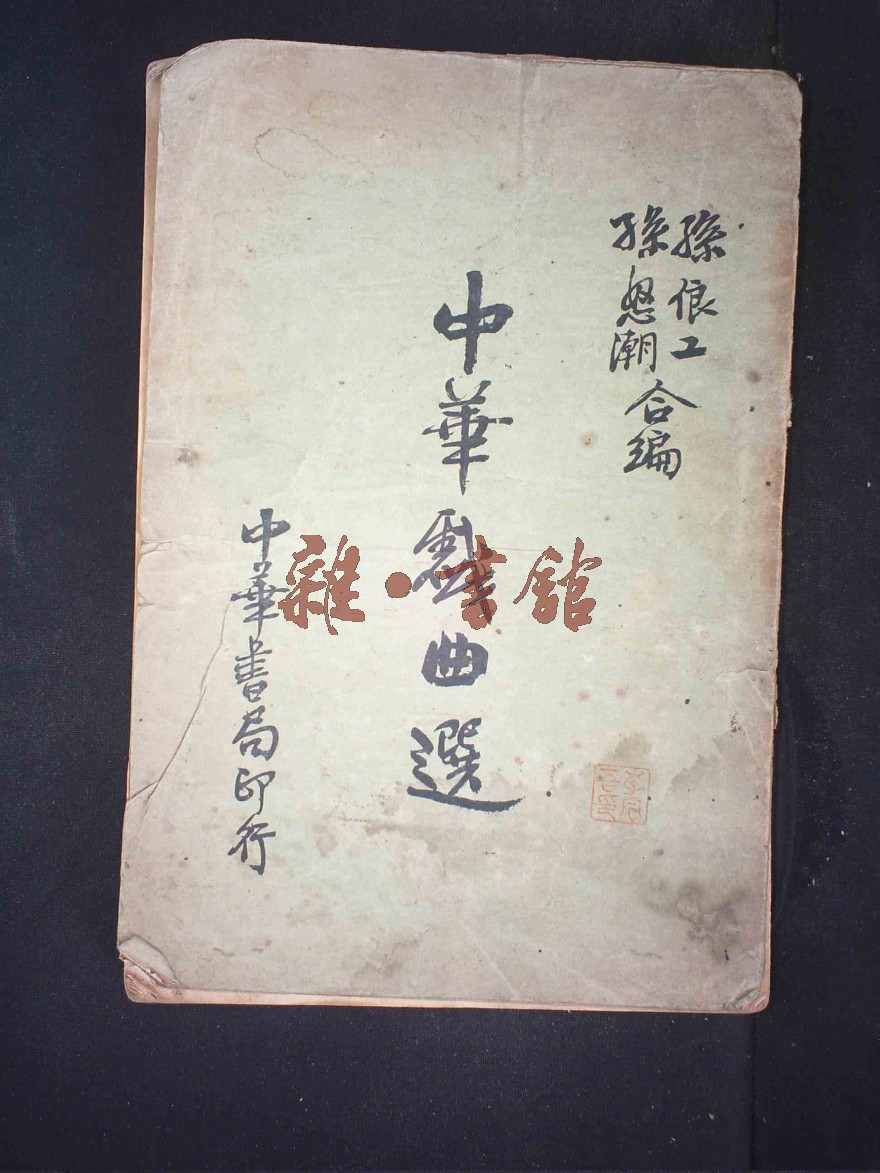 孫俍工
孫怒潮
合編
中華戲曲選
中華書局印行
雜·書館